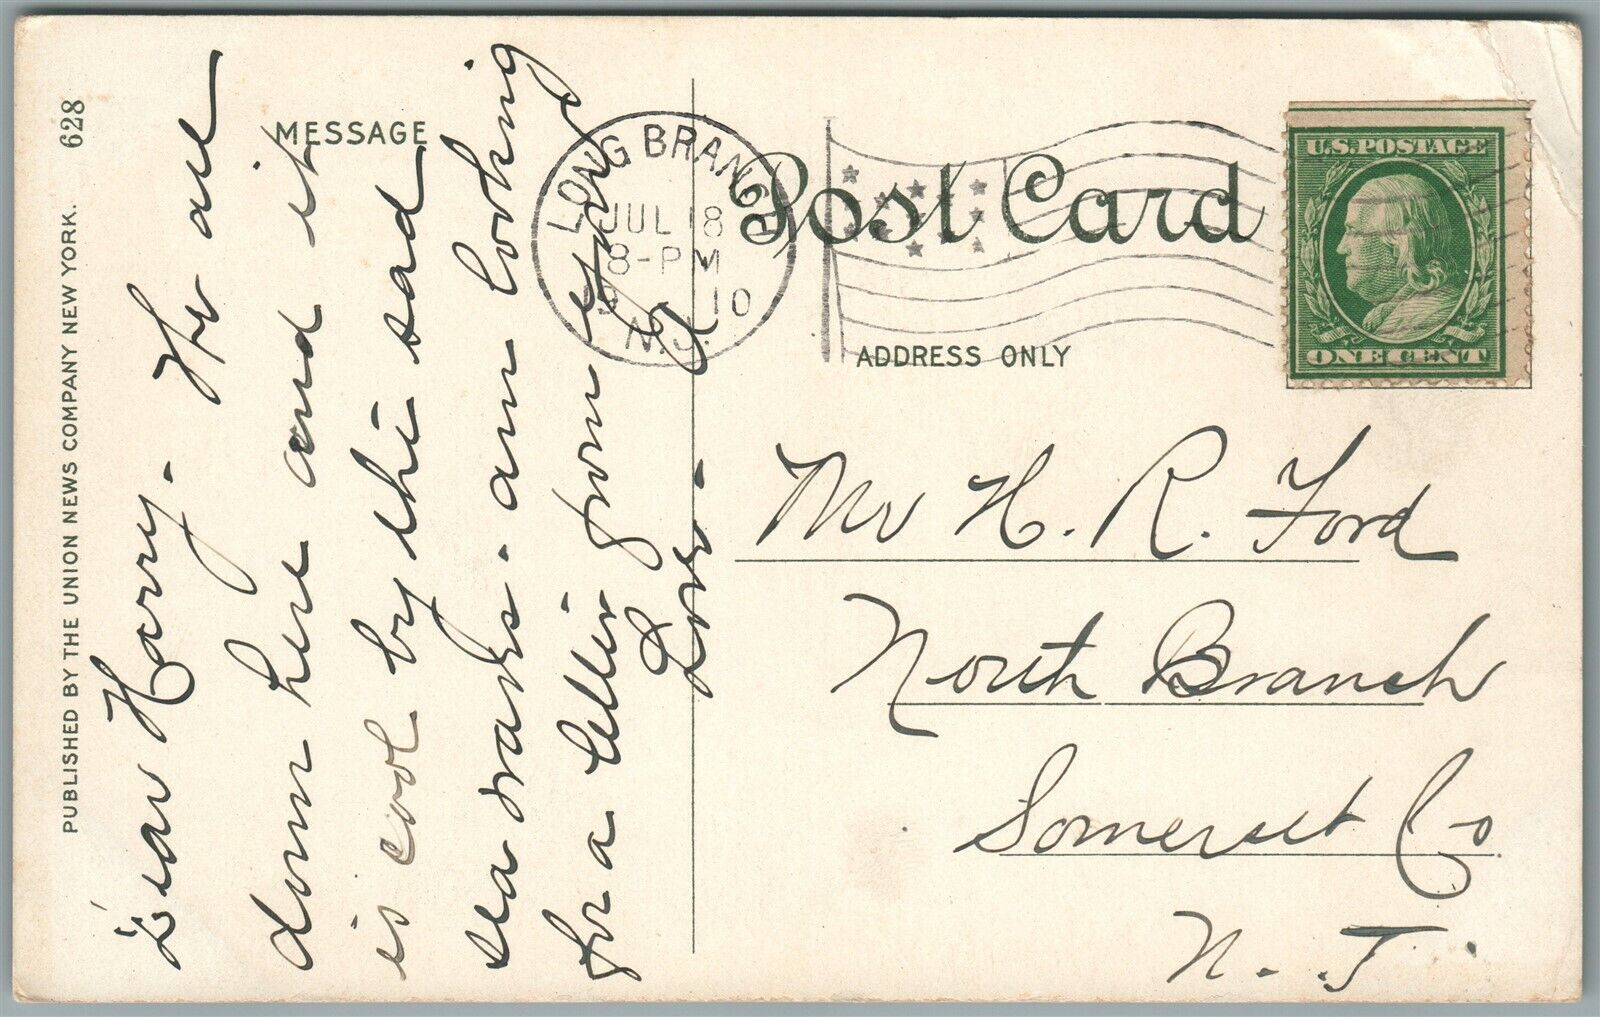 PUBLISHED BY THE UNION NEWS COMPANY NEW YORK. 628
MESSAGE
Dear Harry - We are
down here and it
is cool by the sad
sea waves - am looking
for a letter from you
Love -
LONG BRANCH
JUL 18
8-PM
10
N.J.
Post Card
ADDRESS ONLY
U.S. POSTAGE
ONE CENT
Mr H. R. Ford
North Branch
Somerset Co
N. J.